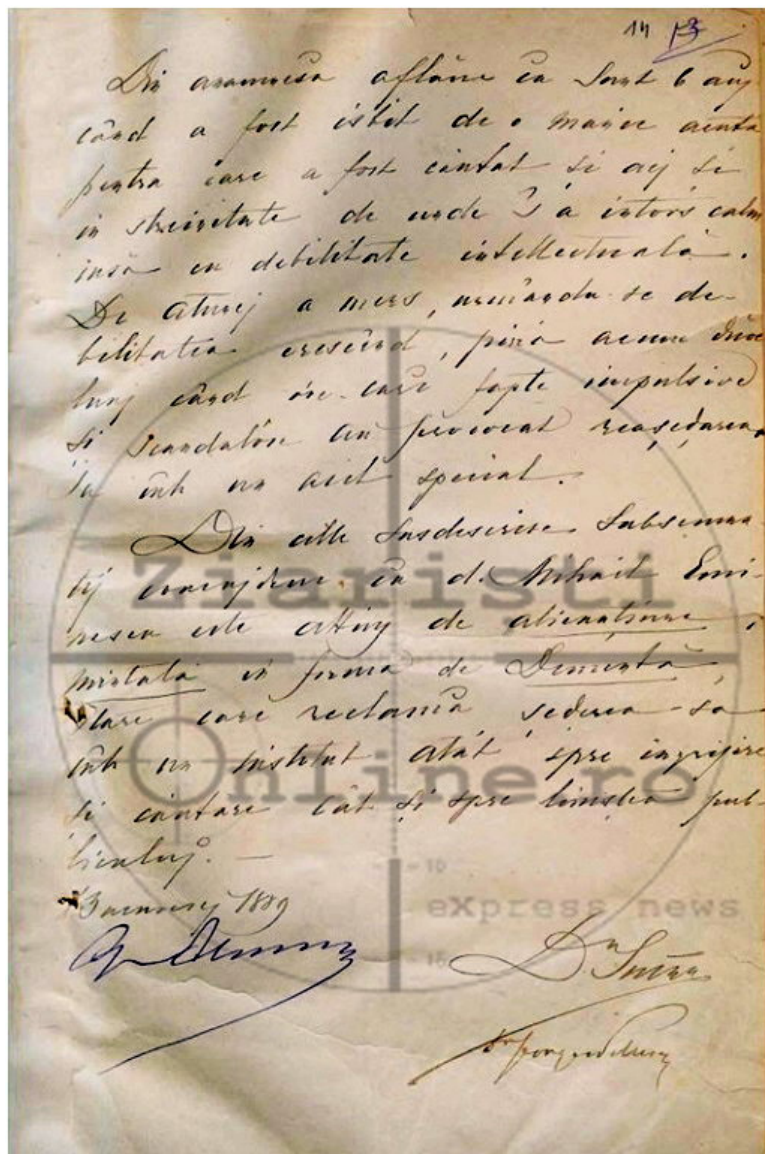 14 13
Din anamnesa aflăm că sunt 6 anj
când a fost isbit de o manie acută
pentru care a fost căutat si aij si
in streinetate de unde s'a intors calm
insă cu debilitate intellectuală.
De atuncj a mers, urmându-se de-
bilitatea crescând, pină acum
lunj când óre-care fapte impulsive
si scandalóse au provocat reașeḑarea
sa intr un asil special.
Din cele susdescrise subsemna-
țij că d. Mihail Emi-
nescu este attins de alienațiune
mintală in formă de Demență,
stare care reclamă șederea sa
intr un institut atât spre ingrijire
si cautare cât și spre liniștea pub-
liculuj. —
1889
Ziaristi
Online.ro
eXpress news
- 10
- 15
Dr Suțu